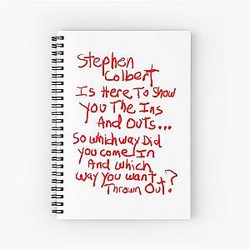 Stephen
Colbert
Is Here To Show
You The Ins
And Outs...
So which way Did
you come In
And which
way you want
Thrown Out?